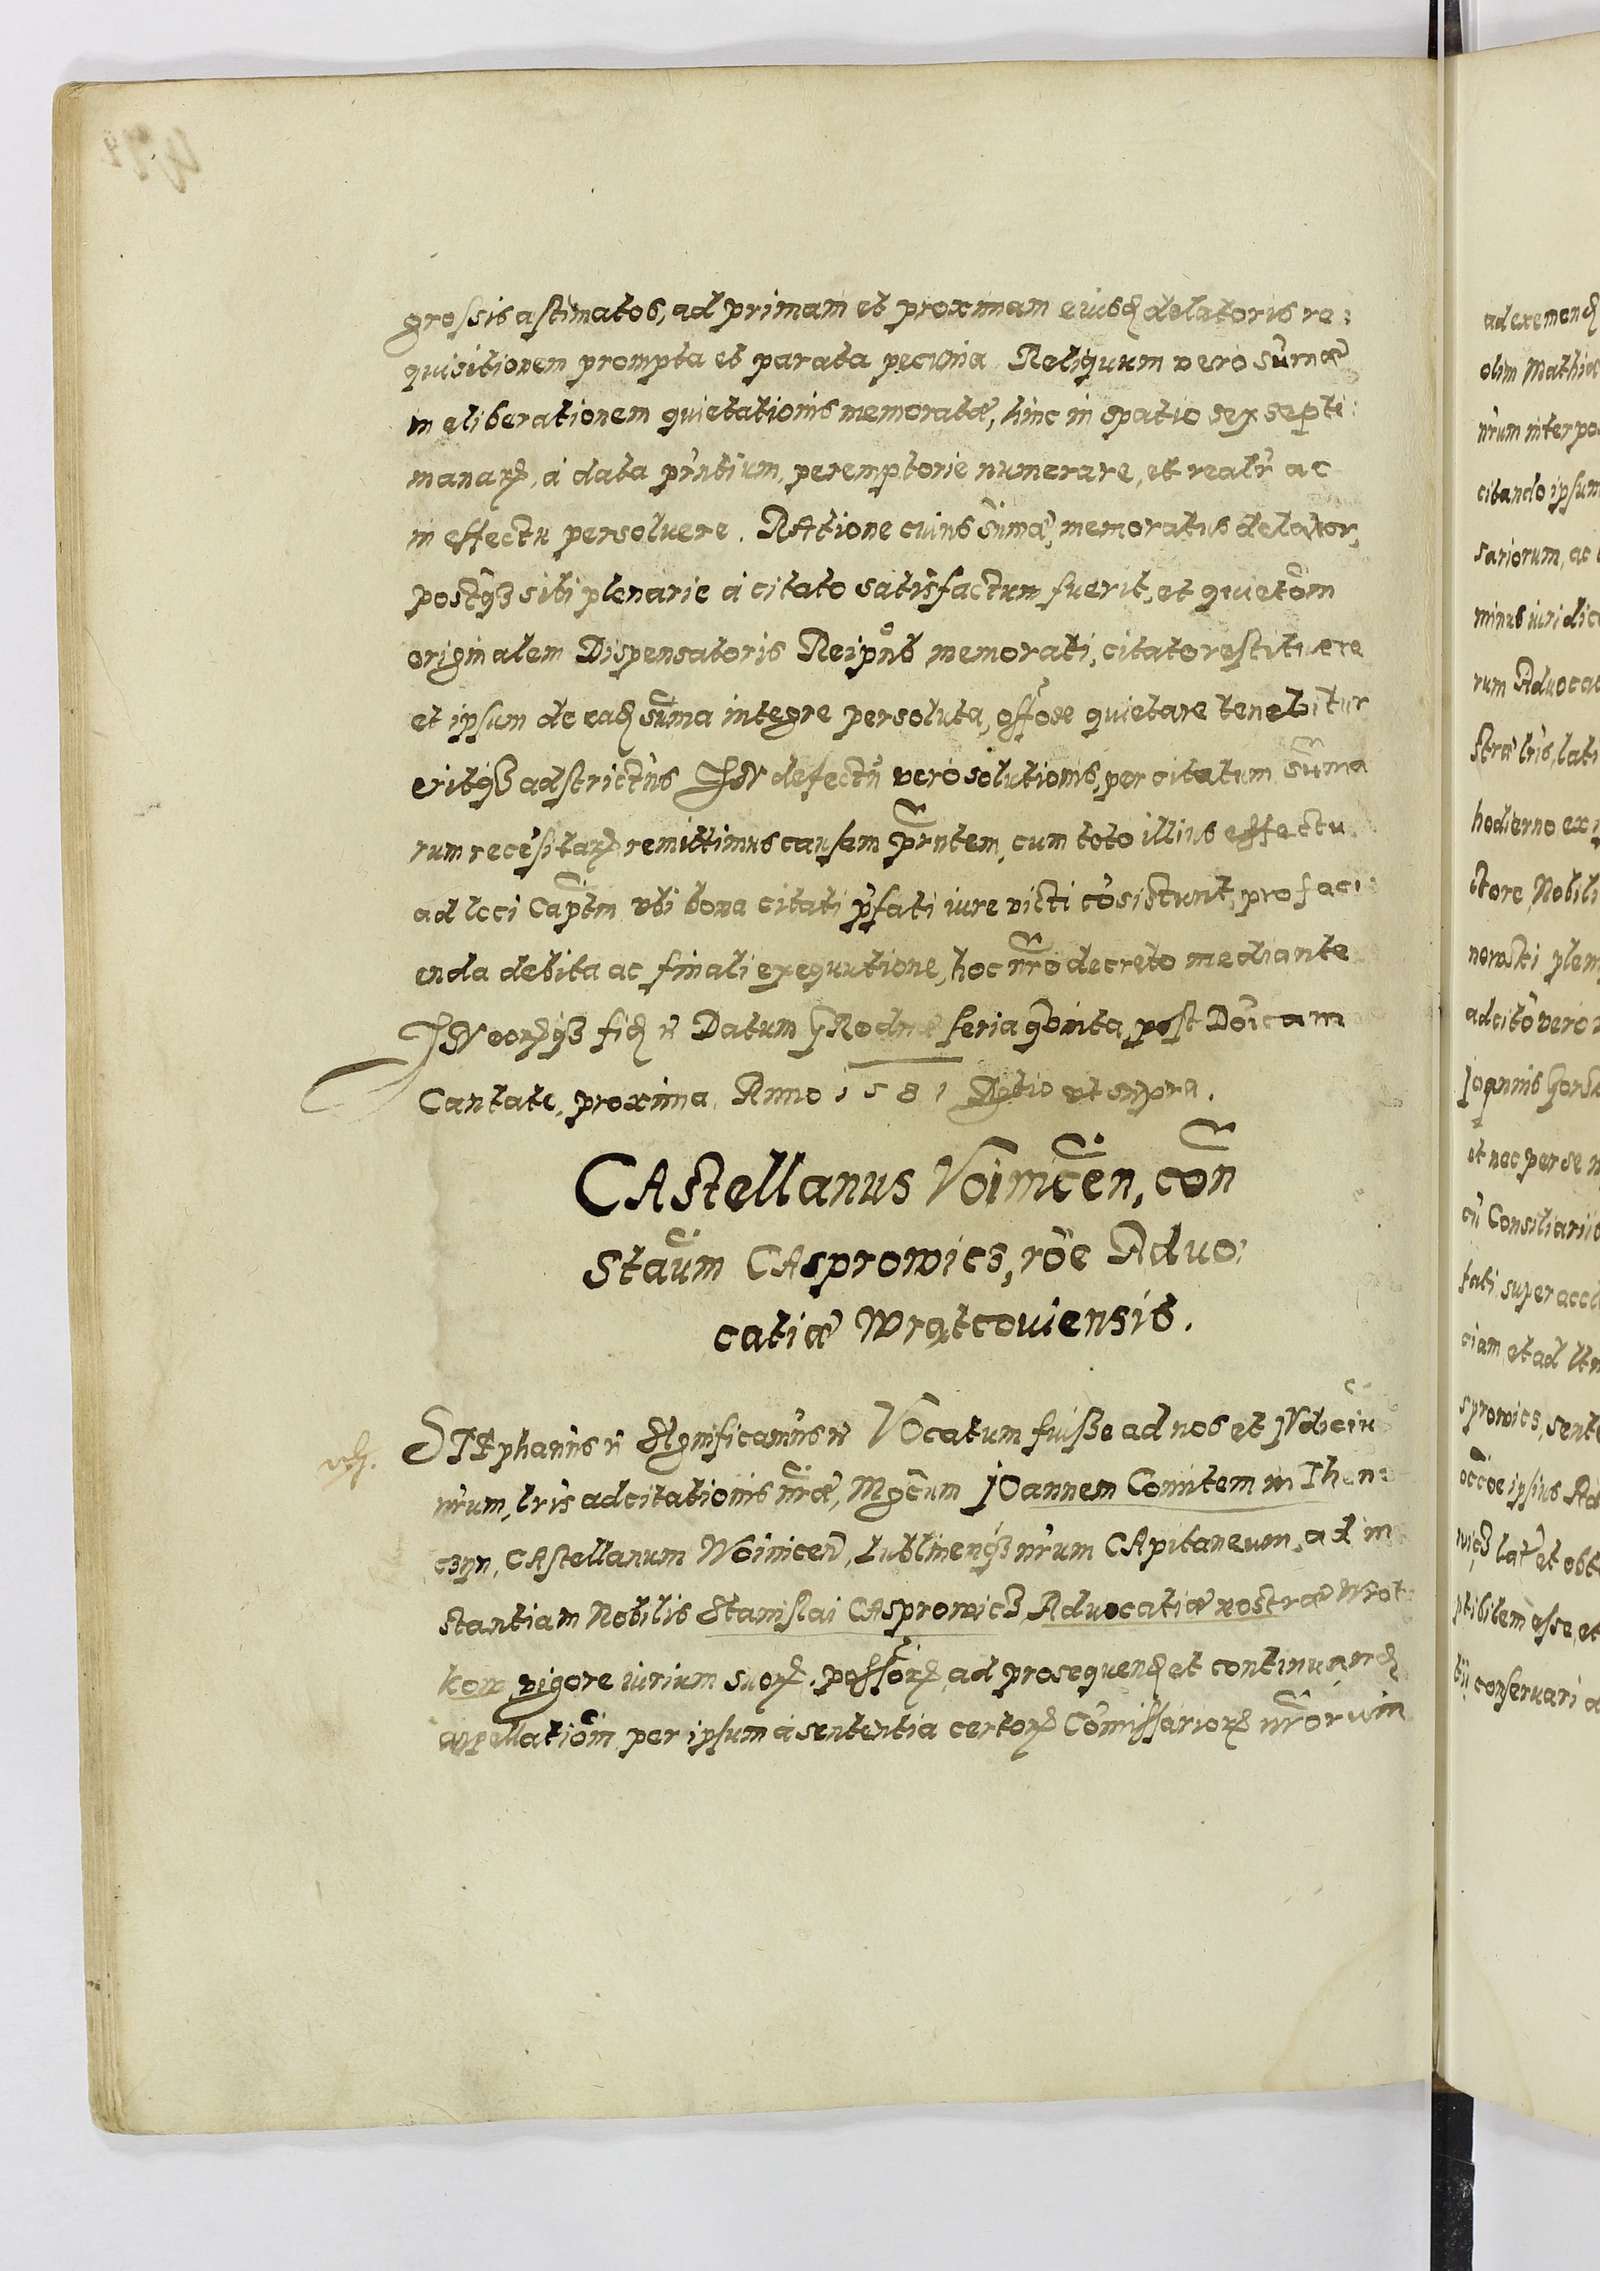 grossis astimatos, ad primam et proximam eiusd delatoris re:
quisitionem prompta et parata pecunia. Reliquum vero sum̃æ
in eliberationem quietationis memoratæ, hinc in spatio sex septi:
manarꝝ, à data pñtium, peremptorie numerare, et realr̃ ac
in effectu persoluere. RAtione cuius sum̃æ, memoratus delator,
postq̃ꝫ sibi plenarie à citato satisfactum fuerit, et quietõm
originalem Dispensatoris Reipub̃ memorati, citato restituere
et ipsum de ead sum̃a integre persoluta, offõse quietare tenebitur
eritqꝫ adstrictus IN defectũ vero solutionis, per citatum sum̃a
rum recẽsitarꝝ remittimus causam pr̃ntem, cum toto illius effectu
ad loci Captm̃ vbi bona citati p̃fati iure victi cõsistunt, pro faci:
enda debita ac finali exequutione, hoc nr̃o decreto mediante
IN quorꝝqꝫ fid ẽ Datum Grodnæ feria quinta post Doĩcam
Cantate, proxima, Anno 1581 R vt supra.
CAstellanus Voiniceñ, con
Staũm CAsprowicz, rõe Aduo:
catiæ Wratcouiensis.
STEphanus ẽ Significamus ẽ VOcatum fuisse ad nos et IVdiciũ
nr̃um, lris adcitationis nr̃æ, Mgcum̃ JOannem Comitem in Then:
czyn, CAstellanum Woiniceñ, Lublineñqꝫ nr̃um CApitaneum, ad in
stantiam Nobilis Stanislai CAsprowicz Aduocatiæ nostræ Wrot
kow vigore iurium suorꝝ possorꝝ, ad prosequend et continuand
appellatiõm per ipsum à sententia certorꝝ Cõmissariorꝝ nr̃orum
ad exemend
olim Mathiæ
nr̃um interpo
citando ipsum
sariorum, ac
minus iuridic
rum Aduocat
stræ lris, lati
hodierno ex
ctore, Nobili
nowski plen
adcitõ vero
Joannis Gors
et nec per se
cũ Consiliariis
fati super acc
ciam et ad
sprowicz, sent
occõe ipsius Ad
wicz lat̃ et obt
ptibilem esse, et
tij conseruari